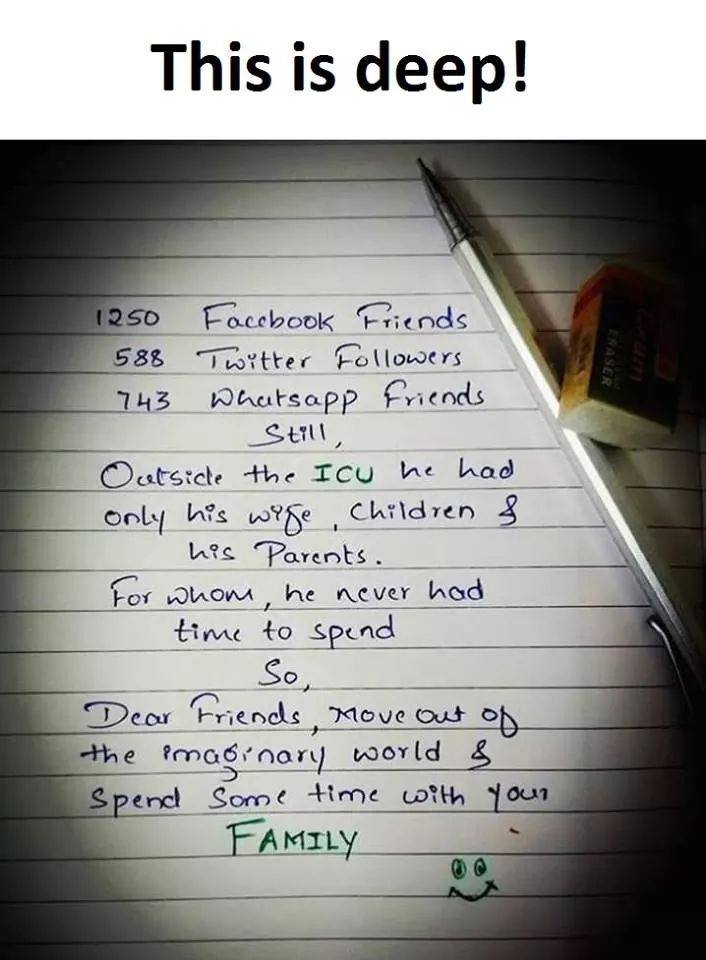 This is deep!
1250 Facebook Friends
588 Twitter Followers
743 Whatsapp friends
Still,
Outside the ICU he had
only his wife, Children &
his Parents.
For whom, he never had
time to spend
So,
Dear Friends, Move out of
the imaginary world &
Spend Some time with your
FAMILY
ERASER